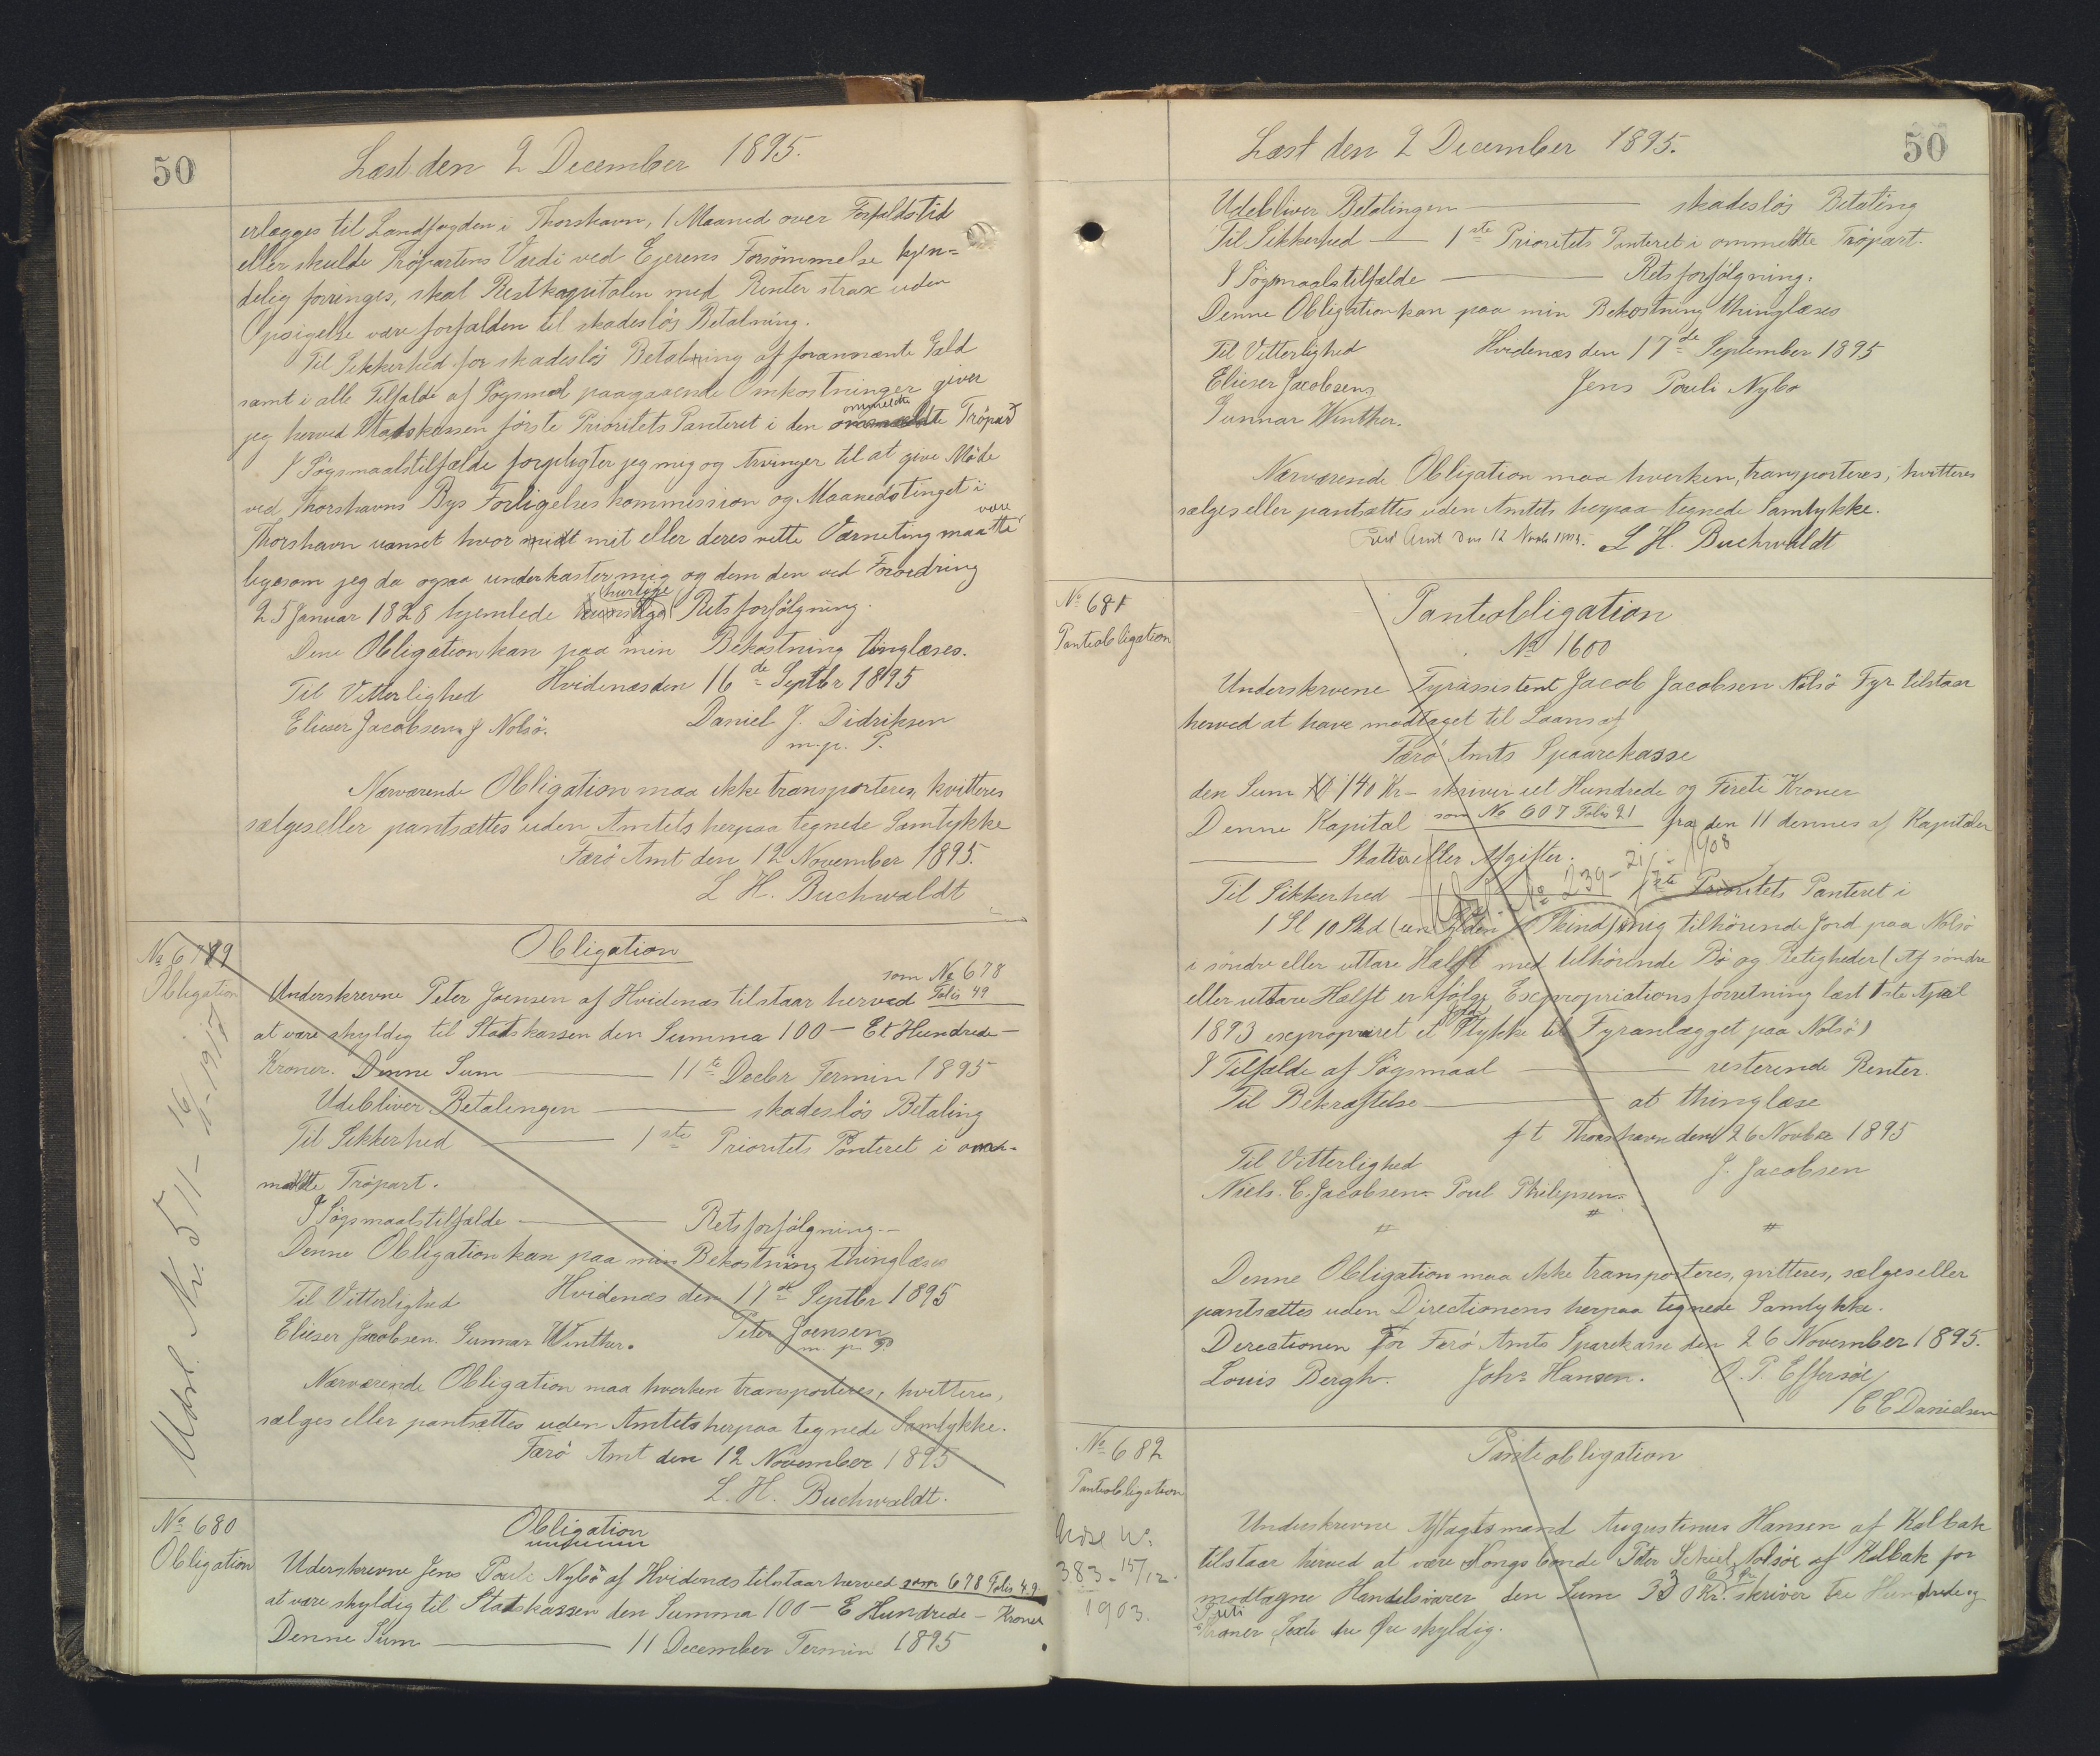 50
Læst den 2 December 1895.
erlægges til Landfogden i Thorshavn, 1 Maaned over Forfaldstid
eller skulde Tröpartens Værdi ved Ejerens Forsömmelse kjen=
delig forringes, skal Restkapitalen med Renter strax uden
Opsigelse være forfalden til skadeslös Betalning.
Til Sikkerhed for skadeslös Betalning af forannævnte Gæld
samt i alle Tilfælde af Sögsmaal paagaaende Omkostninger giver
jeg herved Statskassen förste Prioritets Panteret i den ommeldte Tröpart
I Sögsmaalstilfælde forpligter jeg mig og Arvinger til at give Möde
ved Thorshavns Bys Forligelseskommission og Maanedstinget i
Thorshavn uanset hvor mit eller deres rette Værneting maatte være
ligesom jeg da ogsaa underkaster mig og dem den ved Forordning
25 Januar 1828 hjemlede hurtige Retsforfölgning.
Dene Obligation kan paa min Bekostning tinglæses.
Til Vitterlighed Hvidenæs den 16de Septbr 1895
Elieser Jacobsen J Nolsö. Daniel J. Didriksen
m. p. P.
Nærværende Obligation maa ikke transporteres, kvitteres
sælges eller pantsættes uden Amtets herpaa tegnede Samtykke
Færö Amt den 12 November 1895.
L H. Buchwaldt
No 679
Obligation
Obligation
Underskrevne Peter Joensen af Hvidenæs tilstaar herved som No 678 Folio 49
at være skyldig til Statskassen den Summa 100 — Et Hundrede —
Kroner. Denne Sum ——— 11te Decbr Termin 1895
Udebliver Betalingen ——— skadeslös Betaling
Til Sikkerhed ——— 1ste Prioritets Panteret i om-
meldte Tröpart.
I Sögsmaalstilfælde ——— Retsforfölgning.—
Denne Obligation kan paa min Bekostning thinglæses
Til Vitterlighed Hvidenæs den 17de Septbr 1895
Elieser Jacobsen. Gunnar Winther. Peter Joensen
m. p. P
Nærværende Obligation maa hverken transporteres, kvitteres,
sælges eller pantsættes uden Amtets herpaa tegnede Samtykke.
Færö Amt den 12 November 1895
L. H. Buchwaldt.
Udsl. Nr. 511 - 16/2 - 1917
No 680
Obligation
Obligation
Uderskrevne Jens Pouli Nybö af Hvidenæs tilstaar herved som 678 Folio 49
at være skyldig til Statskassen den Summa 100 — E Hundrede — Kroner
Denne Sum ——— 11 December Termin 1895
50
Læst den 2 December 1895.
Udebliver Betalingen ——— skadeslös Betaling
Til Sikkerhed —— 1ste Prioritets Panteret i ommeldte Tröpart.
I Sögsmaalstilfælde ——— Retsforfölgning.
Denne Obligation kan paa min Bekostning thinglæses
Til Vitterlighed Hvidenæs den 17de September 1895
Elieser Jacobsen Jens Pouli Nybo
Gunnar Winther.
Nærværende Obligation maa hverken, transporteres, kvitteres
sælges eller pantsættes uden Amtets herpaa tegnede Samtykke.
Færö Amt den 12 Novbr L H. Buchwaldt
No 681
Panteobligation
Panteobligation
No 1600
Underskrevne Fyrassistent Jacob Jacobsen Nolsö Fyr tilstaar
herved at have modtaget til Laans af
Færö Amts Spaarekasse
den Sum 140 Kr — skriver et Hundrede og Fireti Kroner
Denne Kapital som No 607 Folio 21 fra den 11 dennes af Kapitaler
——— Skatter eller Afgifter.
Til Sikkerhed ——— 1ste Prioritets Panteret i
Udsl. No 239 - 21/7 - 1908
1 Gl 10 Skd (een Gylden 10 Skind) mig tilhörende Jord paa Nolsö
i söndre eller uttare Halft med tilhörende Bö og Retigheder (Af söndre
eller uttare Halft er ifölge Expropriationsforretning læst 1ste April
1893 exproprieret et Jord Stykke til Fyranlægget paa Nolsö)
I Tilfælde af Sögsmaal ——— resterende Renter.
Til Bekræftelse ——— at thinglæse
f t Thorshavn den 26 Novber 1895
Til Vitterlighed J. Jacobsen
Niels. C. Jacobsen Poul Philipsen
Denne Obligation maa ikke transporteres, qvitteres, sælges eller
pantsættes uden Directionens herpaa tegnede Samtykke.
Directionen for Færö Amts Sparekasse den 26 November 1895.
Louis Bergh. Johs Hansen. O. P. Effersöe
/ C C Danielsen
No 682
Panteobligation
Udsl No
383 - 15/12
1903.
Panteobligation
Underskrevne Aftagtsmand Augustinus Hansen af Kolbak
tilstaar herved at være Kongsbonde Peter Nolsöe af Kolbak for
modtagne Handelsvarer den Sum 330 Kr. 63 Øre skriver tre Hundrede og
Kroner Sexti tre Øre skyldig.